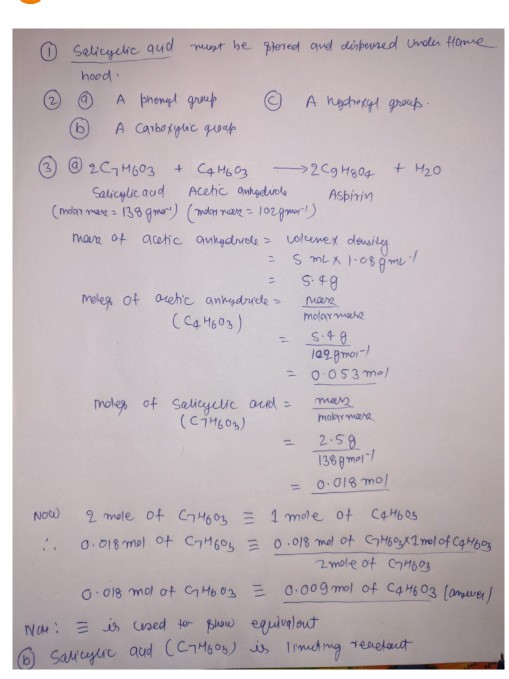 ① Salicyclic acid must be stored and dispensed under flame
hood.
② ⓐ A phenyl group ⓒ A hydroxyl group.
ⓑ A Carboxylic group
③ ⓐ 2C7H6O3 + C4H6O3 ⟶ 2C9H8O4 + H2O
Salicylic acid Acetic anhydride Aspirin
(molar mass = 138 gmol-1) (molar mass = 102 gmol-1)
mass of acetic anhydride = volume x density
= 5 mL x 1.08 gmL-1
= 5.4g
moles of acetic anhydride = mass
(C4H6O3) molar mass
= 5.4 g
102gmol-1
= 0.053 mol
moles of Salicyclic acid = mass
(C7H6O3) molar mass
= 2.5g
138gmol-1
= 0.018 mol
Now 2 mole of C7H6O3 ≡ 1 mole of C4H6O3
∴ 0.018 mol of C7H6O3 ≡ 0.018 mol of C7H6O3 x 1 mol of C4H6O3
2 mole of C7H6O3
0.018 mol of C7H6O3 ≡ 0.009 mol of C4H6O3 (answer)
Note: ≡ is used to show equivalent
ⓑ Salicylic acid (C7H6O3) is limiting reactant